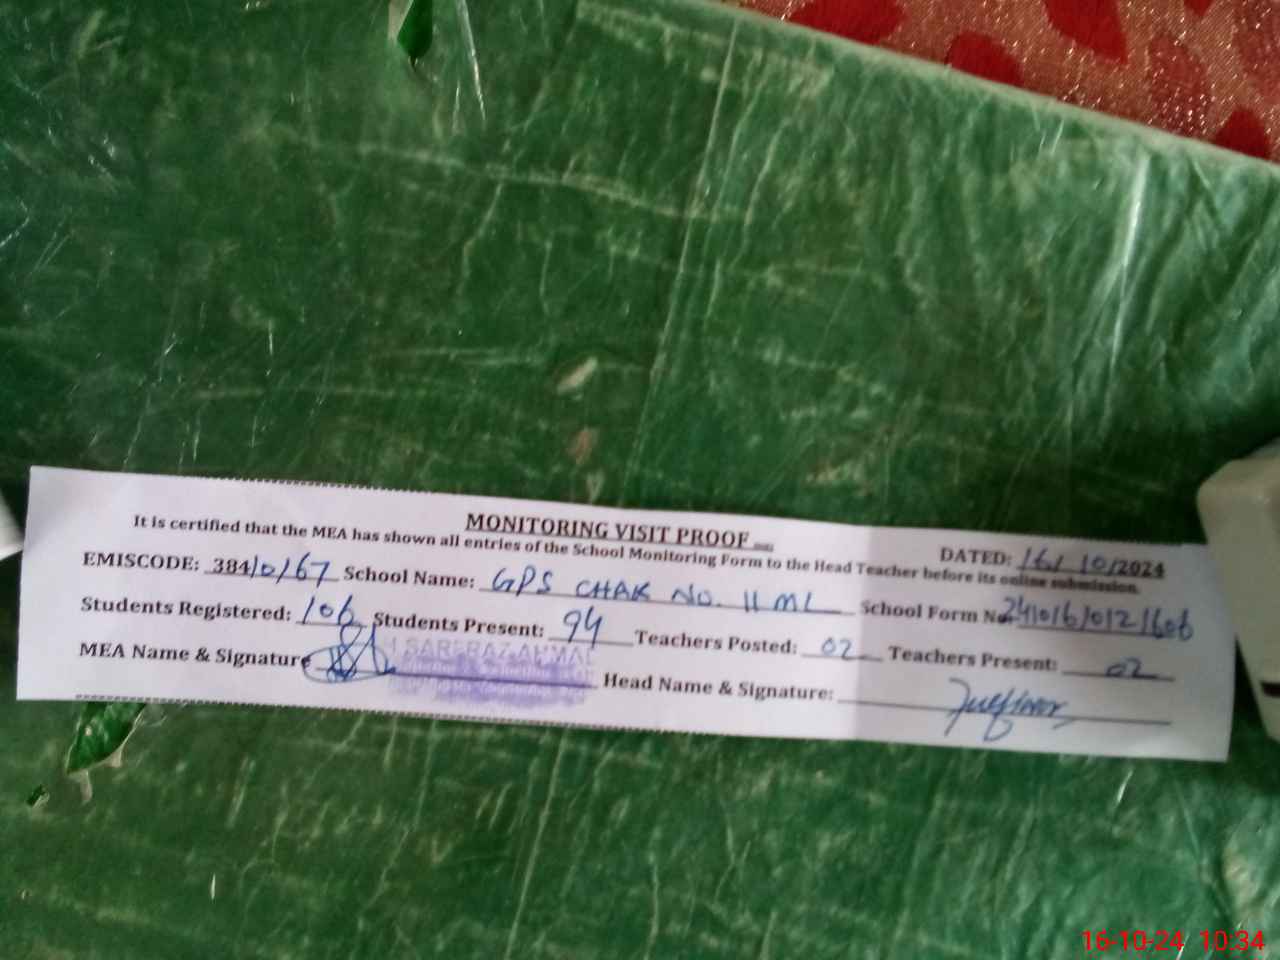 MONITORING VISIT PROOF
DATED: 16/10/2024
It is certified that the MEA has shown all entries of the School Monitoring Form to the Head Teacher before its online submission.
EMISCODE: 38410167 School Name: GPS CHAK NO. 11 ML School Form No: 241016/012/606
Students Registered: 106 Students Present: 94 Teachers Posted: 02 Teachers Present: 02
MEA Name & Signature SARFRAZ AHMAD Head Name & Signature:
16-10-24 10:34